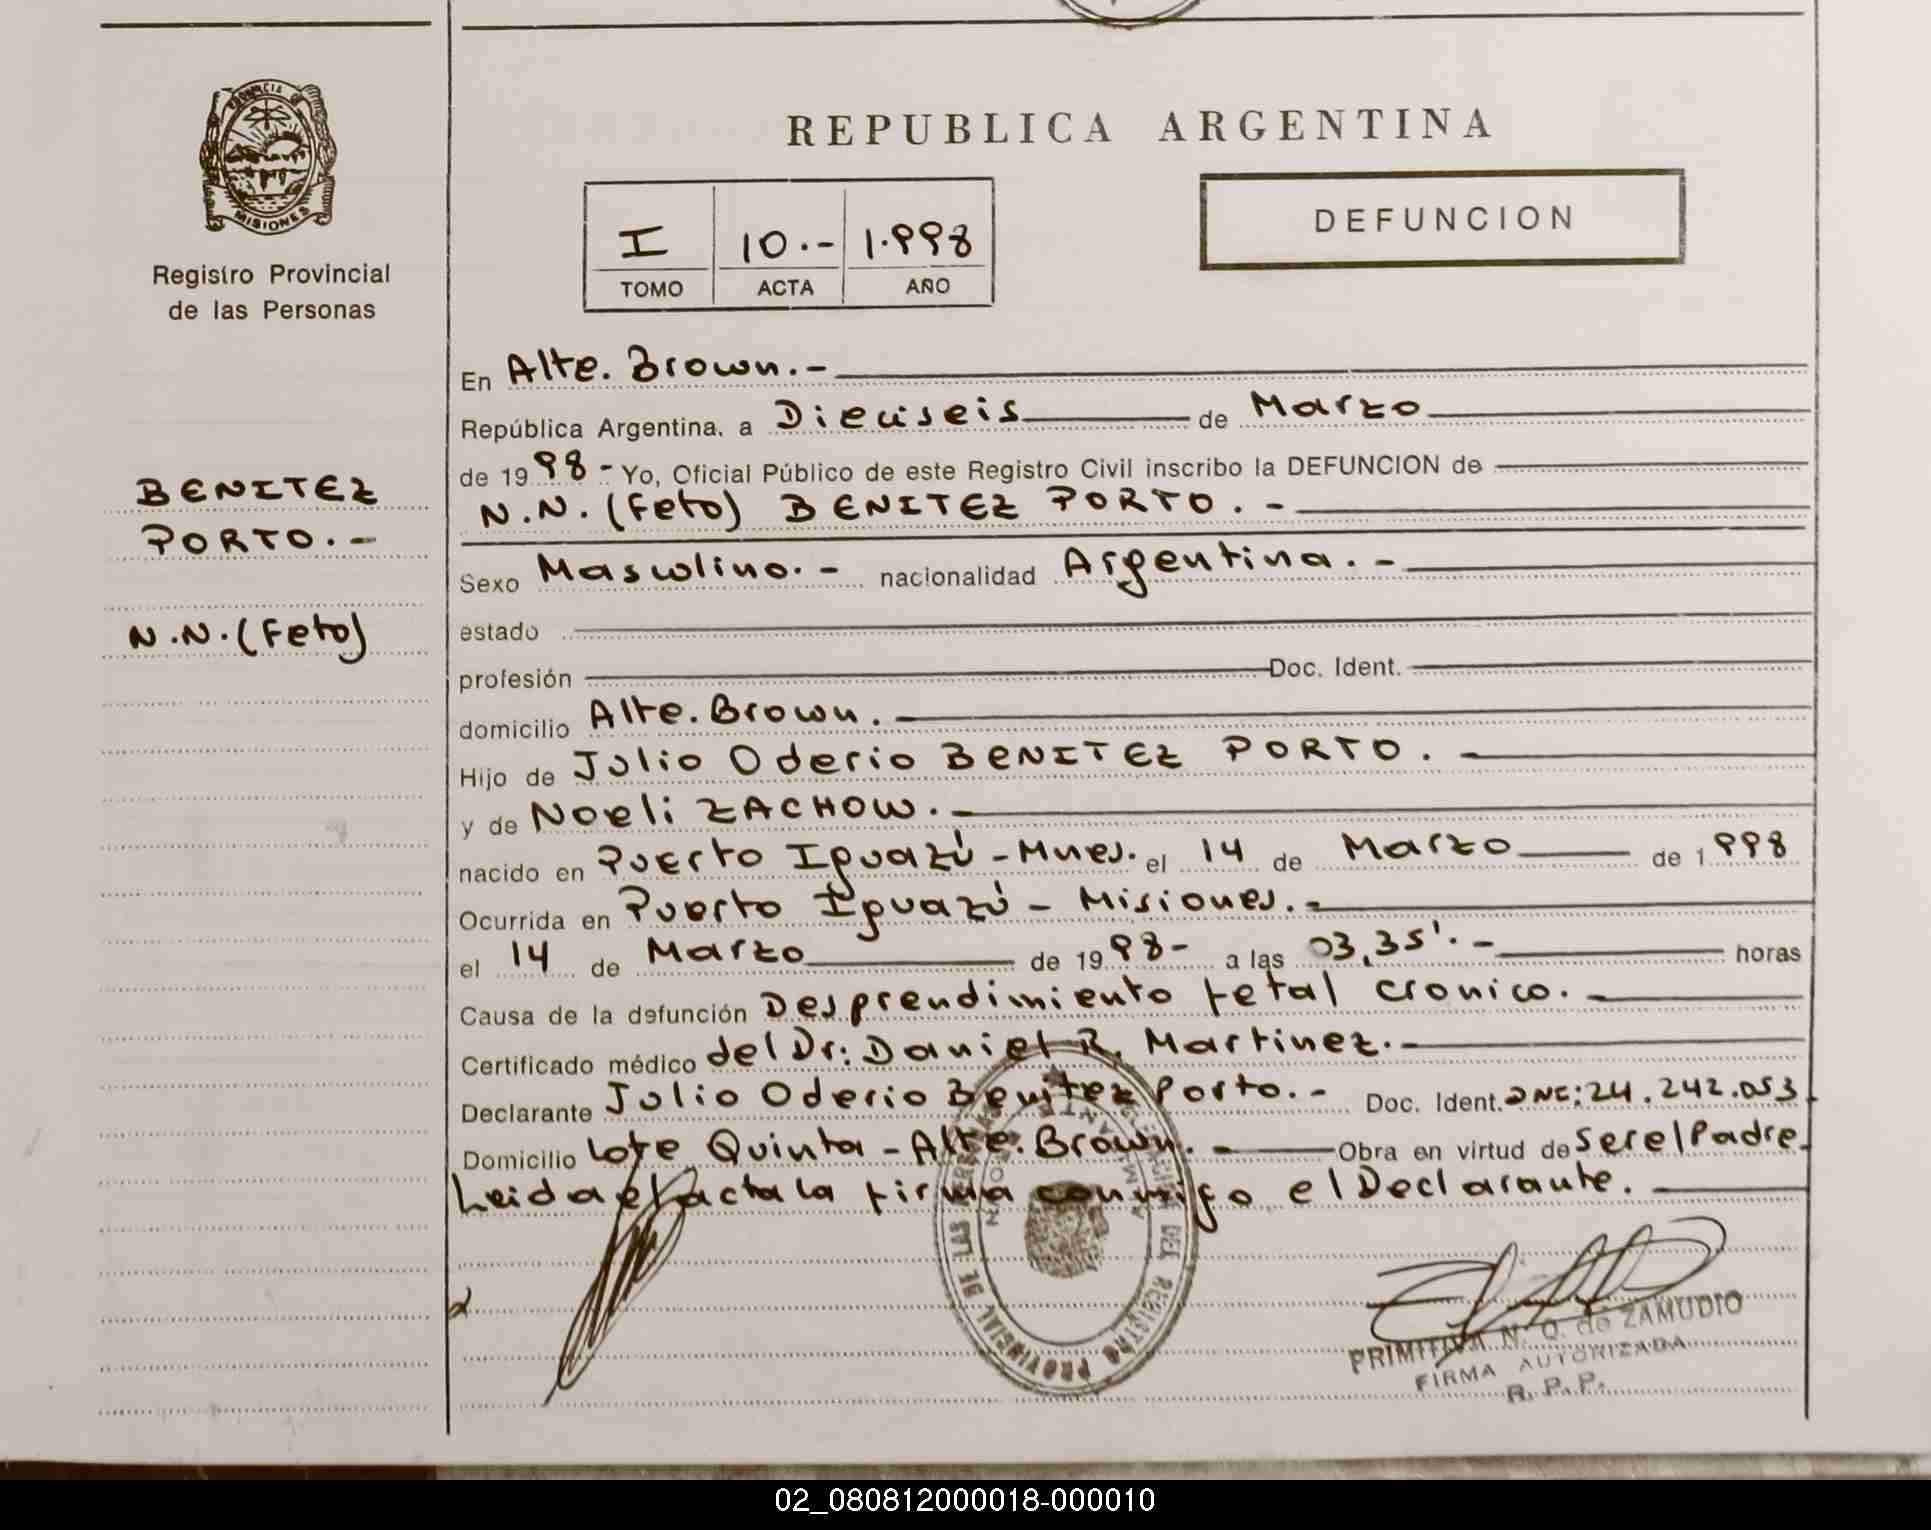 PROVINCIA
MISIONES
Registro Provincial
de las Personas
BENITEZ
PORTO.-
N.N.(Feto)
REPUBLICA ARGENTINA
I 10.- 1.998
TOMO ACTA AÑO
DEFUNCION
En Alte. Brown.-
República Argentina, a Dieciseis de Marzo
de 1998- Yo, Oficial Público de este Registro Civil inscribo la DEFUNCION de
N.N. (Feto) BENITEZ PORTO.-
Sexo Masculino.- nacionalidad Argentina.-
estado
profesión Doc. Ident.
domicilio Alte. Brown.
Hijo de Julio Oderio BENITEZ PORTO.
y de Noeli ZACHOW.-
nacido en Puerto Iguazú - Mnes. el 14 de Marzo de 1998
Ocurrida en Puerto Iguazú - Misiones.-
el 14 de Marzo de 1998- a las 03,35'.- horas
Causa de la defunción Desprendimiento fetal cronico.-
Certificado médico del Dr: Daniel R. Martinez.-
Declarante Julio Oderio Benitez Porto.- Doc. Ident. DNI: 24.242.053.
Domicilio Lote Quinta - Alte. Brown.- Obra en virtud de ser el Padre.
Leida el acta la firma conmigo el Declarante.
REGISTRO PROVINCIAL DE LAS
PRIMITIVA N. Q. de ZAMUDIO
FIRMA AUTORIZADA
R. P. P.
02_080812000018-000010